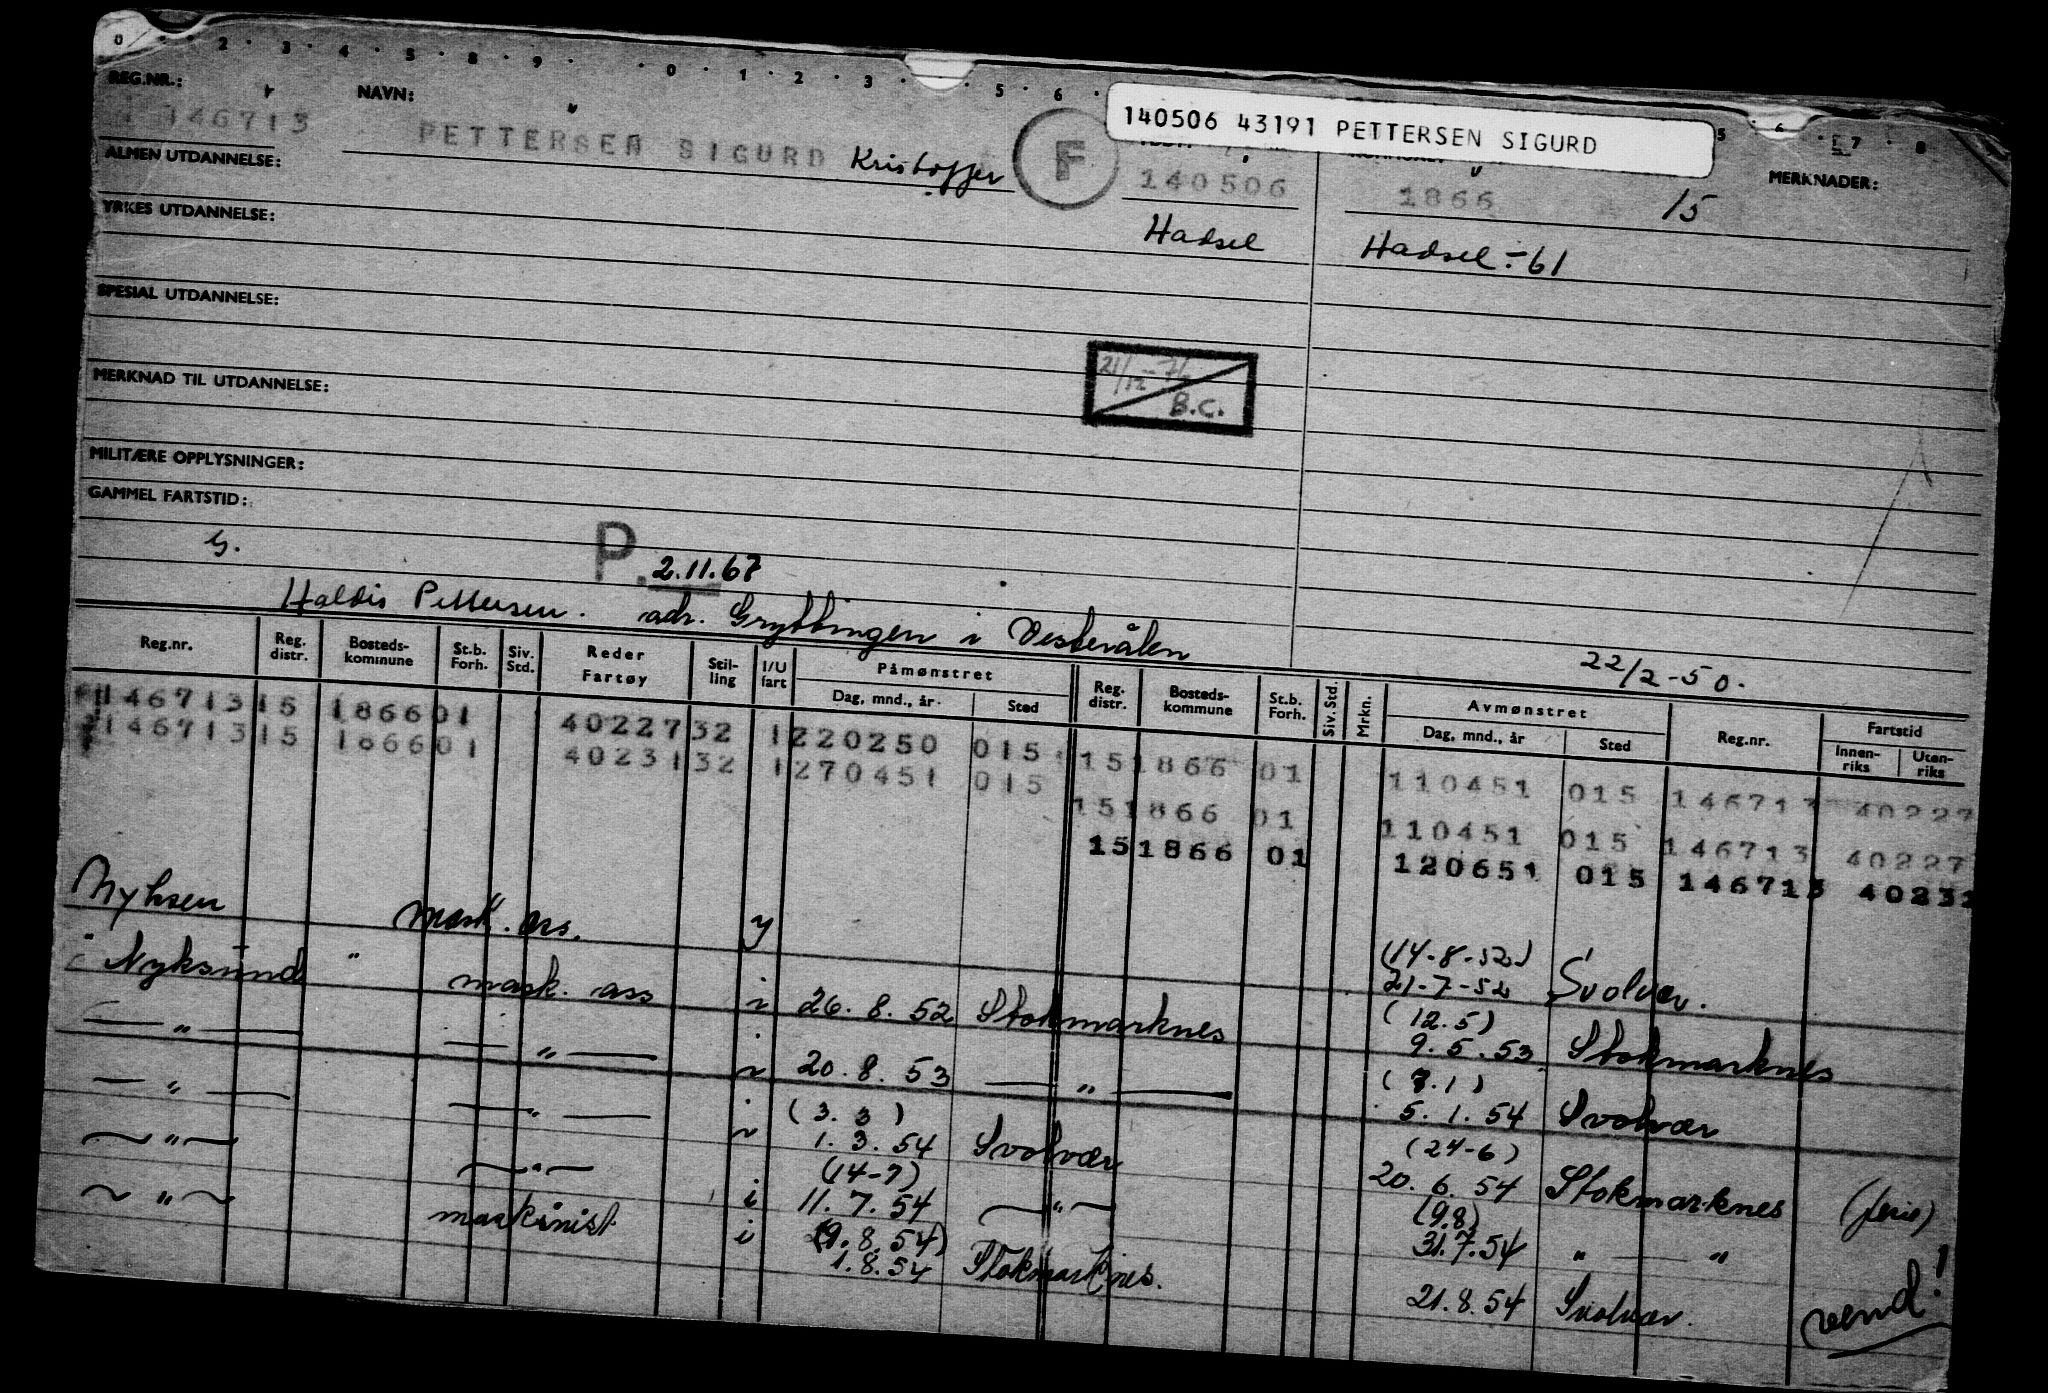 0 · · 2 · 3 · 4 · 5 · 8 · 9 · · 0 · 1 · 2 · 3 · · 5 · 6 · 5 · 6 · 7 · 8
140506 43191 PETTERSEN SIGURD
REG.NR.: NAVN: MERKNADER:
146713 PETTERSEN SIGURD Kristoffer F 140506 1866 15
ALMEN UTDANNELSE:
Hadsel Hadsel -61
YRKES UTDANNELSE:
SPESIAL UTDANNELSE:
21/12-76
B.C.
MERKNAD TIL UTDANNELSE:
MILITÆRE OPPLYSNINGER:
GAMMEL FARTSTID:
G. P. 2.11.67
Haldis Pettersen. adr. Gryttingen i Vesterålen
22/2-50.
Reg.nr. Reg. distr. Bosteds-kommune St.b. Forh. Siv. Std. Reder Fartøy Stil-ling I/U fart Påmønstret Dag, mnd., år Sted Reg. distr. Bosteds-kommune St.b. Forh. Siv. Std. Mrkn. Avmønstret Dag, mnd., år Sted Reg.nr. Fartstid Innen-riks Uten-riks
146713 15 1866 01 40227 32 1 220250 015 15 1866 01 110451 015 146713 40227
146713 15 1866 01 40231 32 1 270451 015 15 1866 01 110451 015 146713 40227
15 1866 01 120651 015 146713 4023
Nyksen mask. ass. (14-8-52) 21-7-52 Svolvær.
" Nyksund " mask. ass i 26. 8. 52 Stokmarknes (12.5) 9. 5. 53 Stokmarknes
— " — — " — 20. 8. 53 — " — (7.1) 5. 1. 54 Svolvær
— " — — " — (3. 3) 1. 3. 54 Svolvær (24-6) 20. 6. 54 Stokmarknes (ferie)
— " — — " — i (14-7) 11. 7. 54 — " — (9.8) 31.7.54 " — "
— " — maskinist i (9. 8. 54) 1.8.54 Stokmarknes. 21.8.54 Svolvær.
vend!